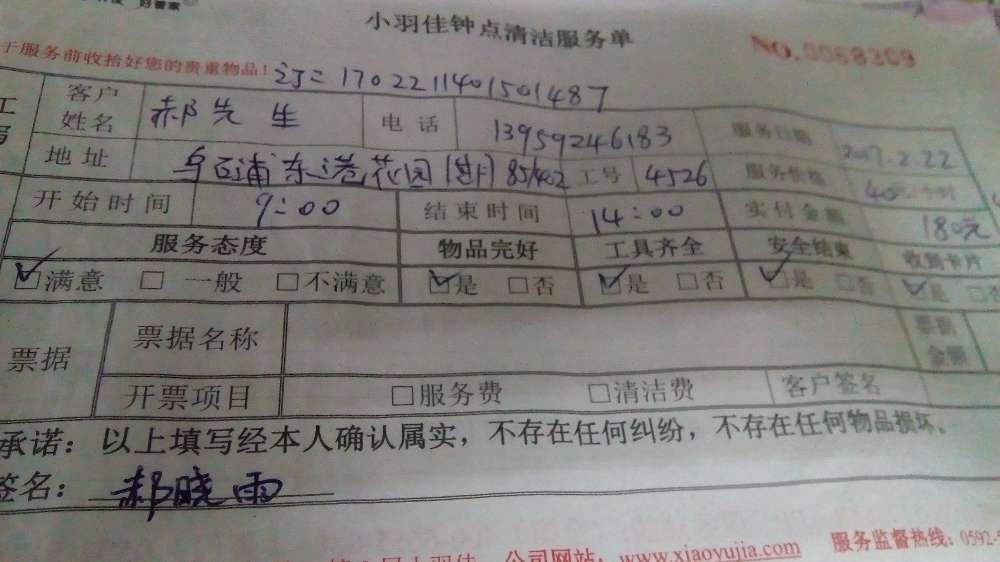 小羽佳钟点清洁服务单
NO.0068369
于服务前收拾好您的贵重物品! 订二 1702211401501487
客户姓名 郝先生 电话 13959246183 服务日期 2017.2.22
地址 乌石浦东港花园 85/402 工号 4526 服务价格
开始时间 9:00 结束时间 14:00 实付金额 180元
服务态度 物品完好 工具齐全 安全结束 收到卡片
☑满意 □一般 □不满意 ☑是 □否 ☑是 □否 ☑是 □否 ☑是 □否
票据 票据名称 票据金额
开票项目 □服务费 □清洁费 客户签名
承诺：以上填写经本人确认属实，不存在任何纠纷，不存在任何物品损坏。
签名：郝晓雨
公司网站：www.xiaoyujia.com 服务监督热线：0592-